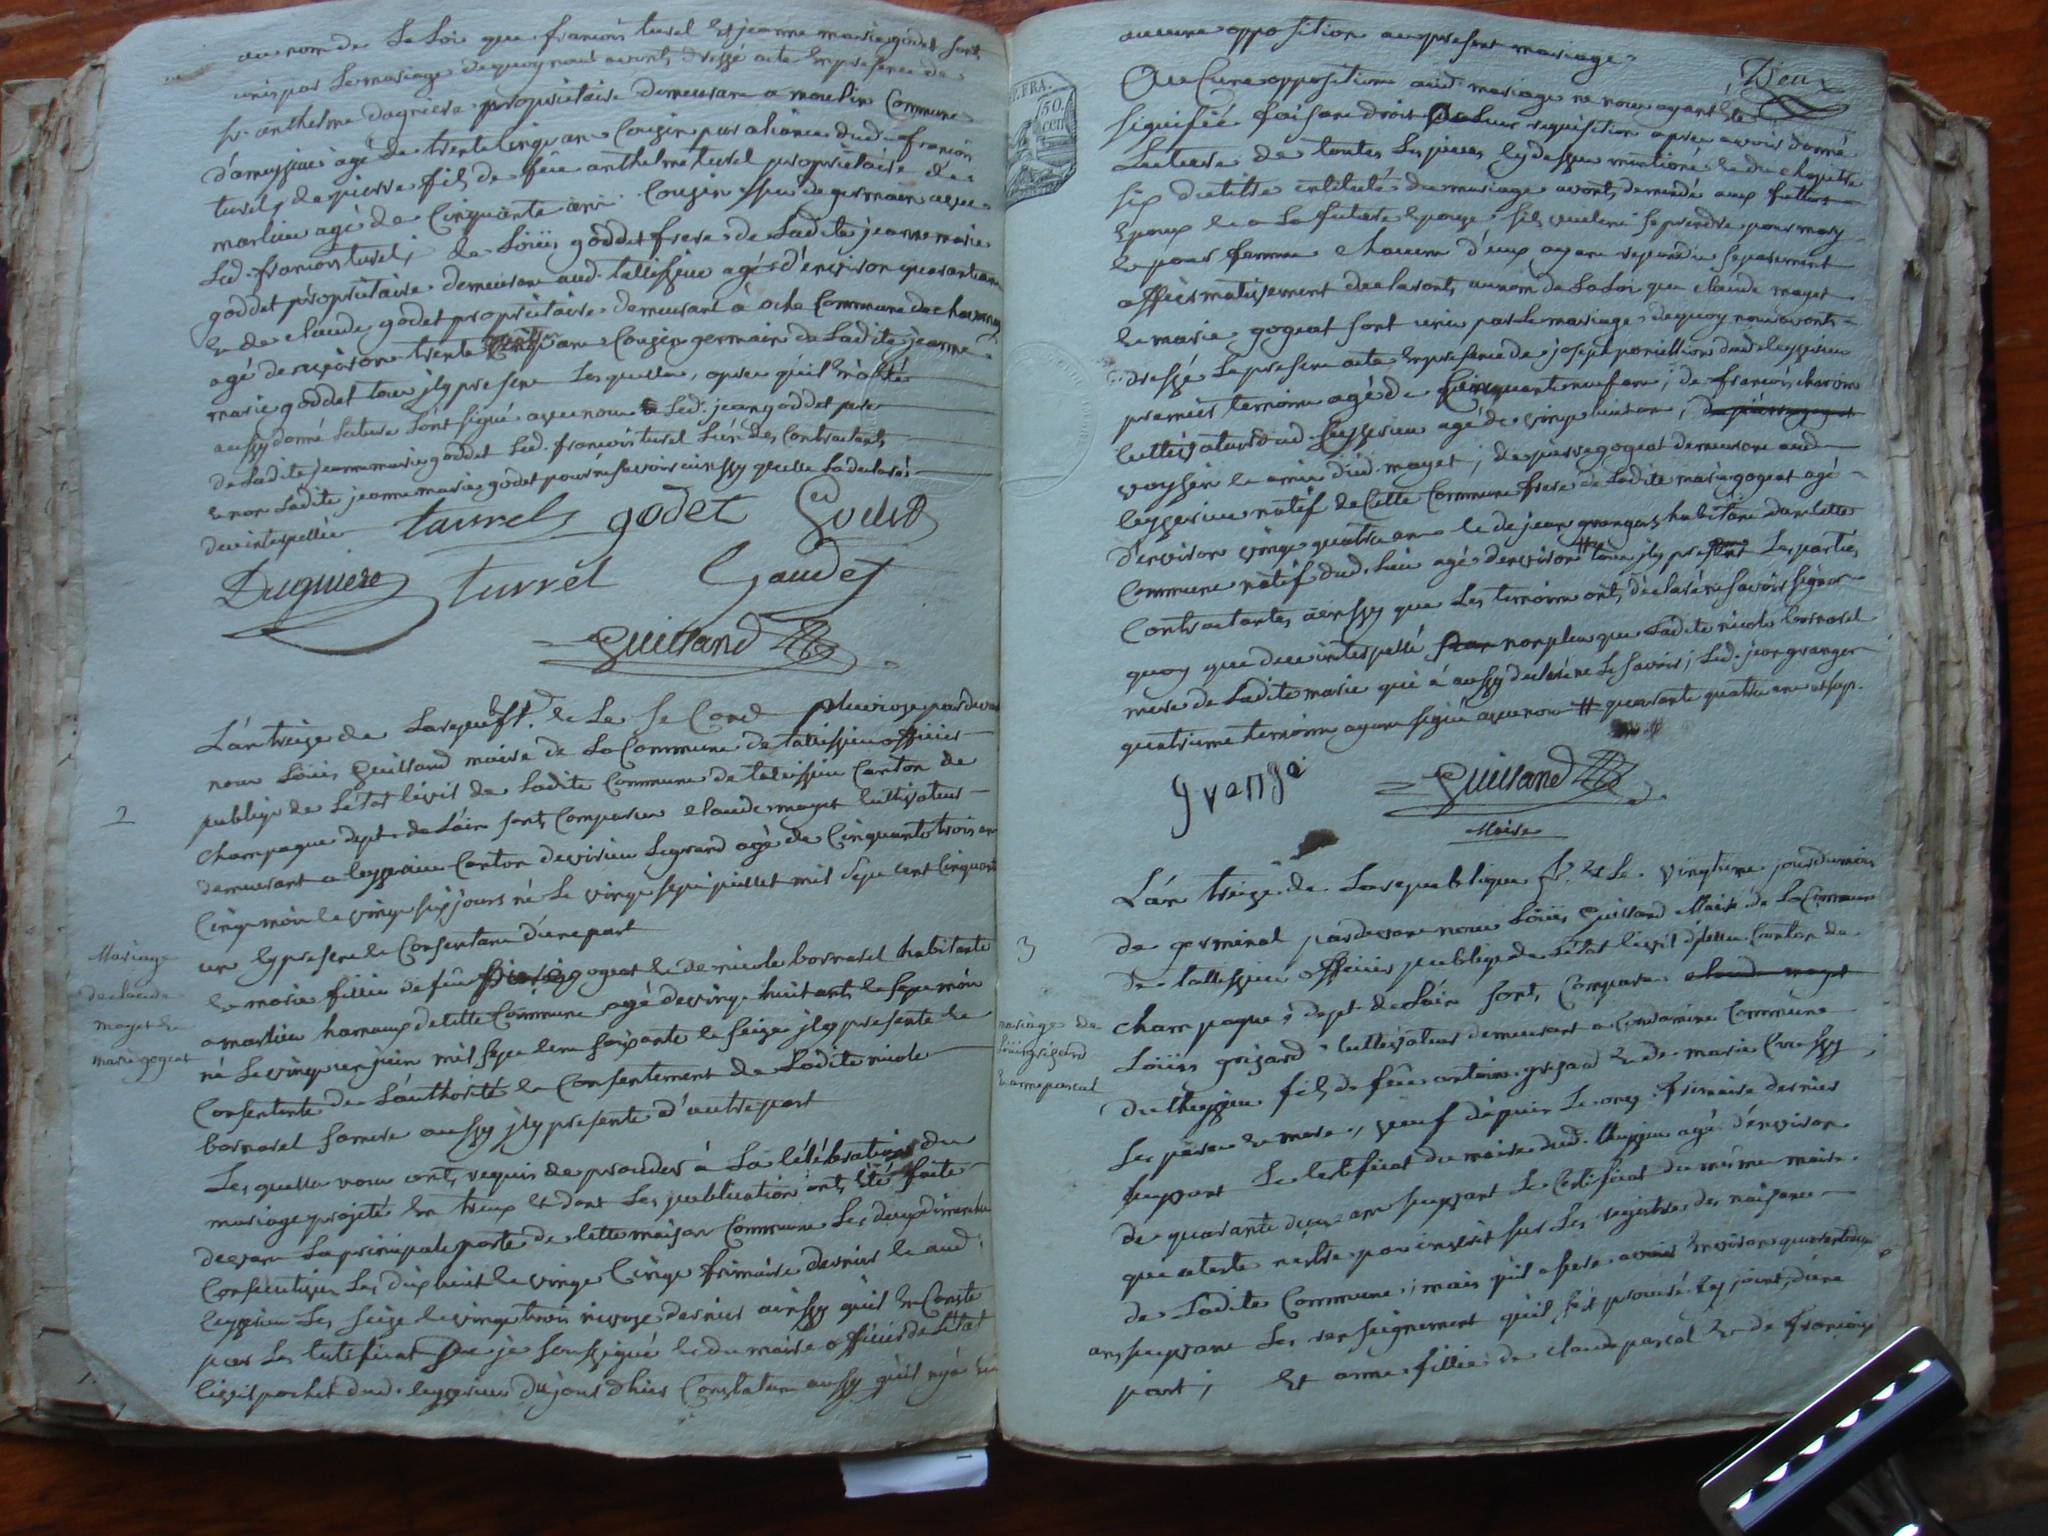 au nom de La Loi que francois turel Et jeanne marie godet sont
unis par Le mariage de quoy nous avons dressé acte En presence de
sr. anthelme dagniere proprietaire demeurant a moulin Commune
d'ameyzieu agé de trente Cinq ans Cousin par aliance dud. francois
turel, de pierre fils de feu anthelme turel proprietaire de
marlieu agé de Cinquante ans Cousin issu de germain avec
Led. francois turel; de Loüis goddet frere de Ladite jeanne marie
goddet proprietaire demeurant aud. tallissieu agé d'environ quarante ans
& de claude godet proprietaire demeurant à oche Commune de
agé d'environ trente ans Cousin germain de Ladite jeanne
marie goddet tous jcy present Lesquels, apres qu'il
aussy donné Lecture L'ont signé avec nous & Led. jean goddet pere
de Ladite jeanne marie goddet Led. francois turel L'un des Contractants
& non Ladite jeanne marie godet pour ne savoir ainssy quelle La declaré
deue interpellée
turrel godet Godet
Dugniere turrel Gaudet
Guilland
L'an treize de La republ. f. & Le Second pluviose pardevant
nous Loüis Guilland maire de La Commune de tallissieu officier
publiqe de Létat Civil de Ladite Commune de talissieu Canton de
2
champagne dept. de Lain sont Comparus claude mayet Cultivateur
demeurant a leyssieu Canton de virieu Legrand agé de Cinquante trois ans
Cinq mois & vingt six jours né Le vingt sept juillet mil Sept cent Cinquante
un Cy present & Consentant d'une part
Mariage
de claude
mayet &
marie gogeat
& marie fillie de feu gogeat & de nicole bornarel habitante
a marlieu hameaux de Cette Commune agé de vingt huit ans & sept mois
né Le vingt un juin mil sept Cent soixante & seize jcy presente &
Consentente de L'authorité & Consentement de Ladite nicole
bornarel sa mere aussy jcy presente d'autre part
Lesquels nous ont requis de proceder à La Célébration du
mariage projeté En treux & dont Les publication ont Eté faite
devant La principale porte de Cette maison Commune Les deux dimenche
Consecutif Les dix huit & vingt Cinq frimaire dernier & aud.
leyssieu Les seize & vingt trois nivose dernier ainssy quil En Conste
par Les Certificat que je soussigné & du maire officier de Létat
Civil pochet dud. leyssieu du jour d'hier Constatant aussy qu'il ny a Eu
aucune opposition au present mariage
Deux
Aucune opposition aud. mariage ne nous ayant Eté
signifié faisant droit a Leur requisition apres avoir donné
Lecture de toutes Les pieces Cy dessus mentioné & du chapitre
six du titre intitulé du mariage avons demandé aux futurs
Epoux & a La future Epouze sils veulent se prendre pour mary
& pour femme chacun d'eux ayant repondu separement
affirmativement declarons au nom de La Loi que claude mayet
& marie gogeat sont unis par Le mariage de quoy nous avons
dressé Le present acte En presence de joseph dud. leyssieu
premier temoin agé de Cinquante neuf ans; de francois
Cultivateur dud. leyssieu agé de vingt huit ans, de pierre gogeat
voysin & amis dud. mayet; de pierre gogeat demeurant aud.
leyssieu natif de Cette Commune frere de Ladite marie gogeat agé
d'environ vingt quatre ans & de jean granger habitant dans Cette
Commune natif dud. Lieu agé d'environ # tous jcy present Les parties
Contractantes ainssy que Les temoins ont déclaré ne savoir signer
quoy que deue interpellé non plus que Ladite nicole bornarel
mere de Ladite marie qui a aussy declaré ne Le savoir; Led. jean granger
quatrieme temoin ayant signé avec nous # quarante quatre ans
Grange
Guilland
Maire
L'an treize de La republique fr. & Le vingtieme jour du mois
de germinal pardevant nous Loüis Guilland Maire de La Commune
3
de tallissieu officier publiqe de Létat Civil dicelle Canton de
champagne dept. de Lain sont Comparu claude mayet
mariage de
Loüis grisard
& anne pascal
Loüis grizard Cultivateur demeurant a Condamine Commune
fils de feu antoine grizard & de marie
Les pere & mere, veuf depuis Le onze frimaire dernier
suyvant Le Certificat du maire dud. agé d'environ
de quarante deux ans suyvant Le Certificat du méme maire
que n'estre pas inscrit sur Les registres des naissance
de Ladite Commune; mais qu'il avoir Environ quarante deux
ans suyvant Les renseignement qu'il s'est procuré Cy joint, d'une
part; Et anne fillie de claude pascal & de françoise